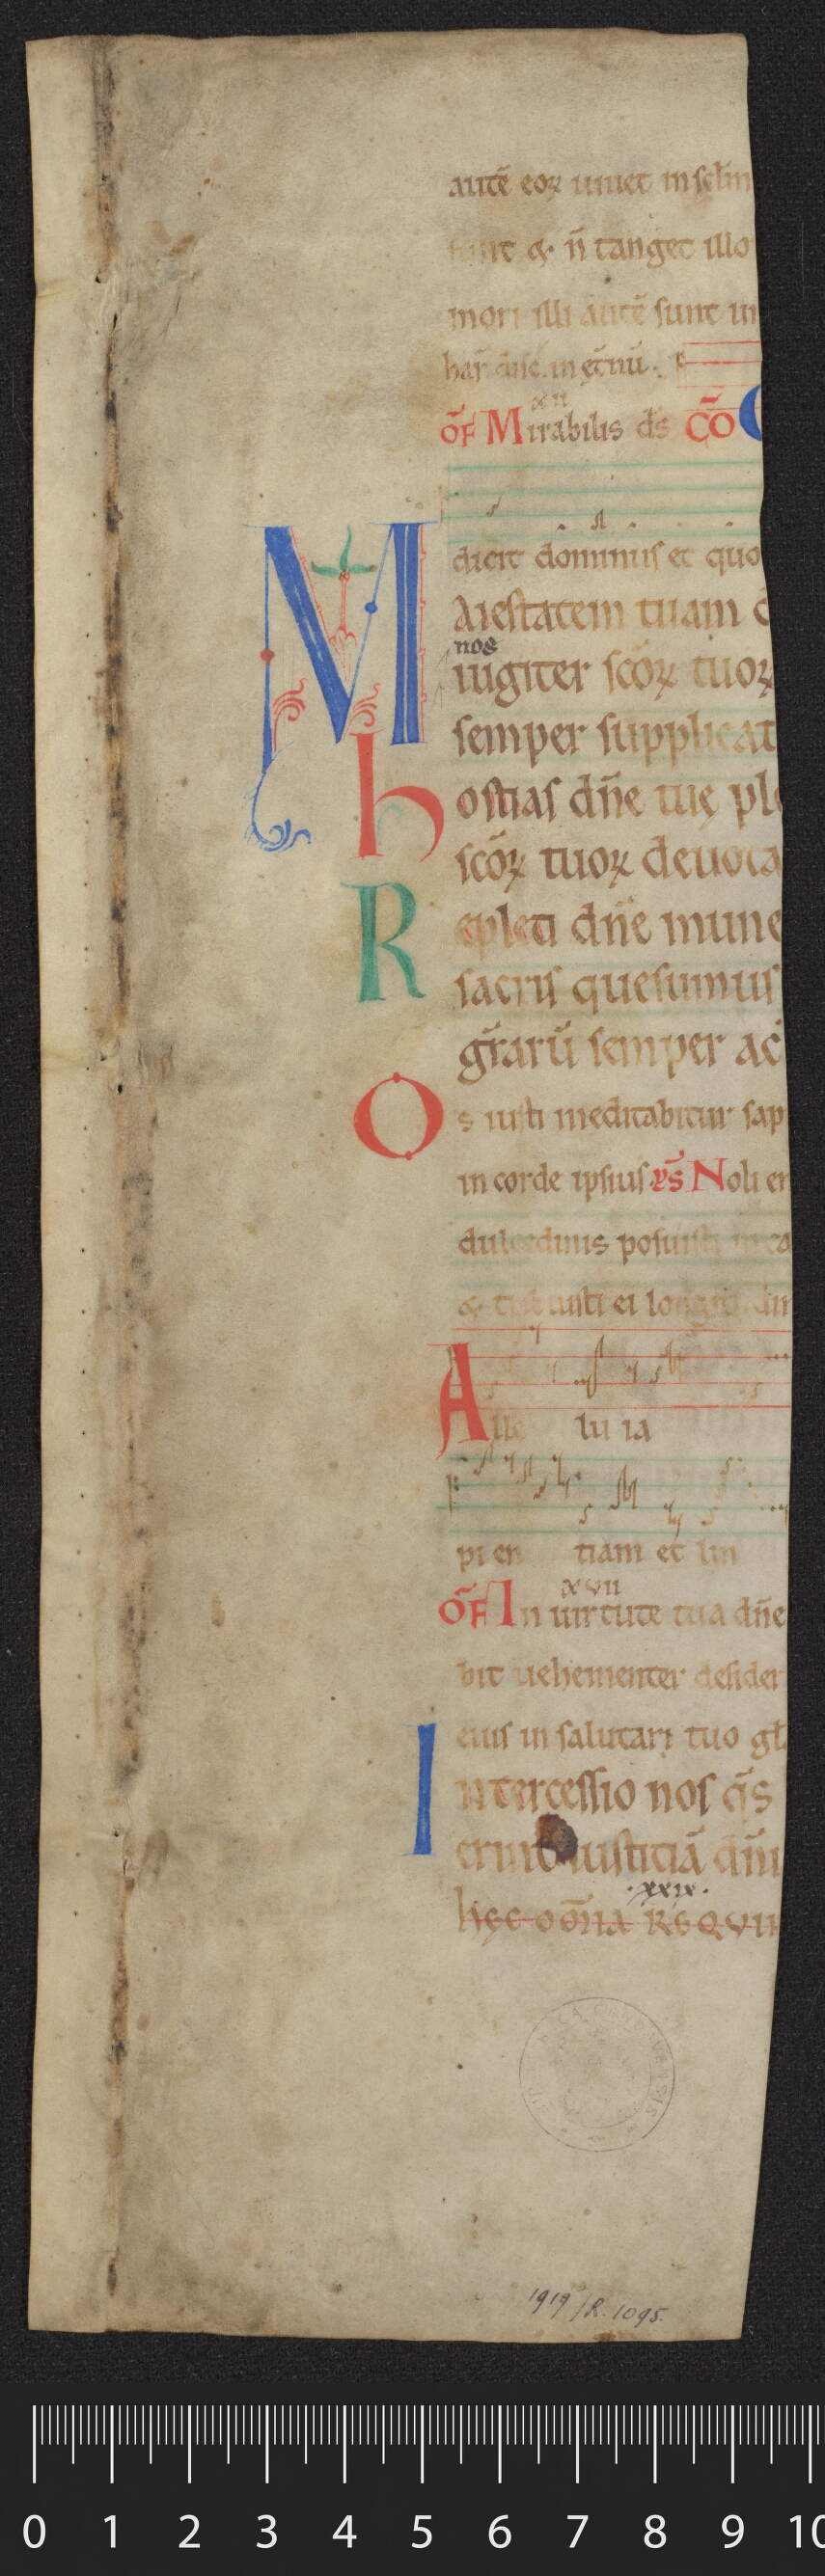 autē eoꝝ uiuet in sclm
sunt & n̄ tanget illo
mori illi autē sunt in
in ęt̄nū.
xii
OF̄ Mirabilis ds̄ CŌ
dicit dominus et quo
M Aiestatem tuam
nos
iugiter scōꝝ tuoꝝ
semper supplicat
h ostias dn̄e tuę ple
scōꝝ tuoꝝ deuota
R epleti dn̄e mune
sacris quesumus
gr̄arū semper ac
O s iusti meditabitur sap
in corde ipsius Ps̄ Noli em
dulcedinis posuisti in ca
& tribuisti ei longitudin
Alle lu ia
pi en tiam et lin
xvii
OF̄ In uirtute tua dn̄e
bit uehementer desider
eius in salutari tuo gl
I ntercessio nos q̄s
erunt iusticiā dn̄i
.xxix.
hęc oōna REQVII
1919/R. 1095.
0 1 2 3 4 5 6 7 8 9 10